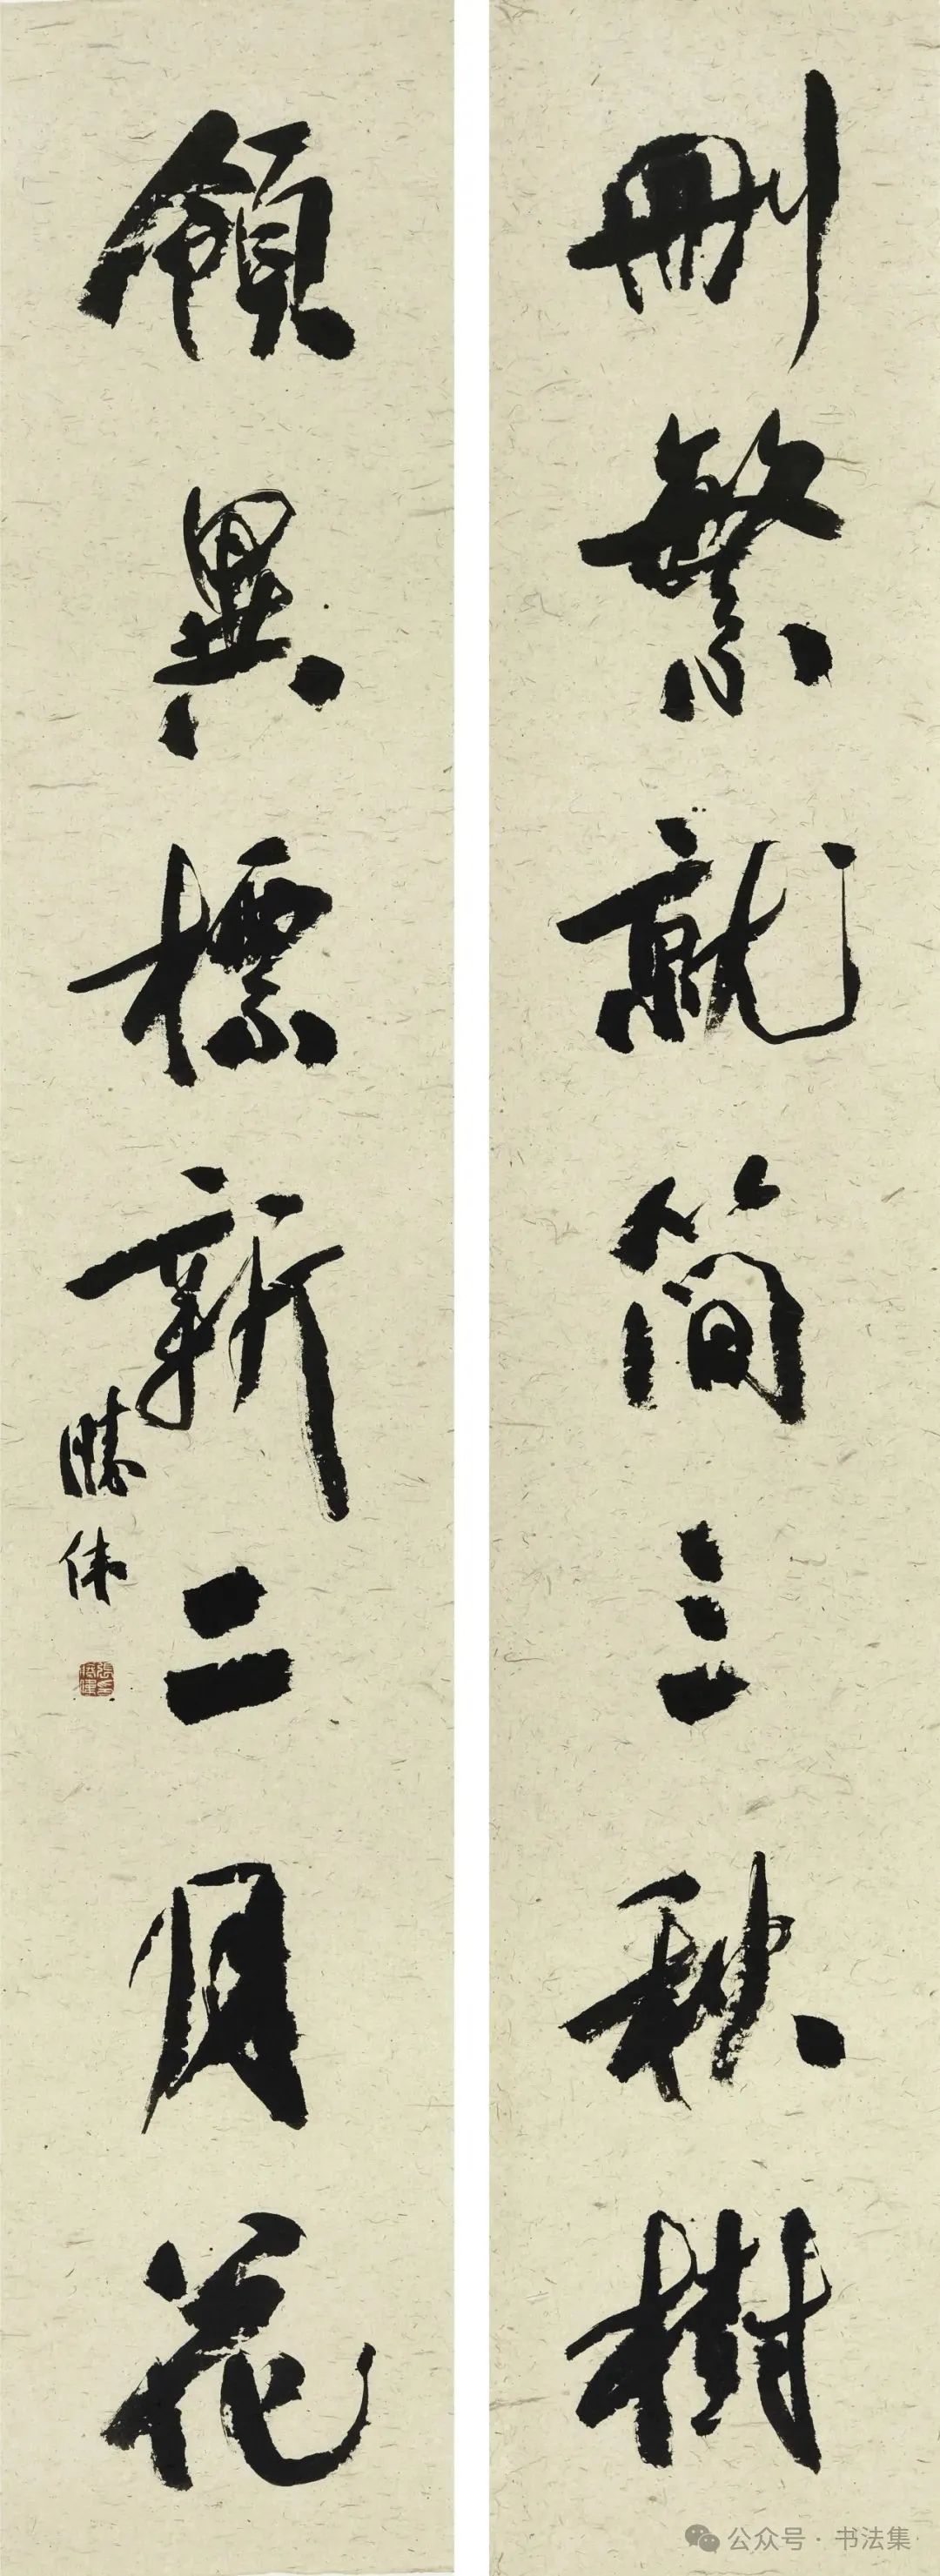 刪繁就简三秋樹
領異標新二月花
勝伟
公众号·书法集